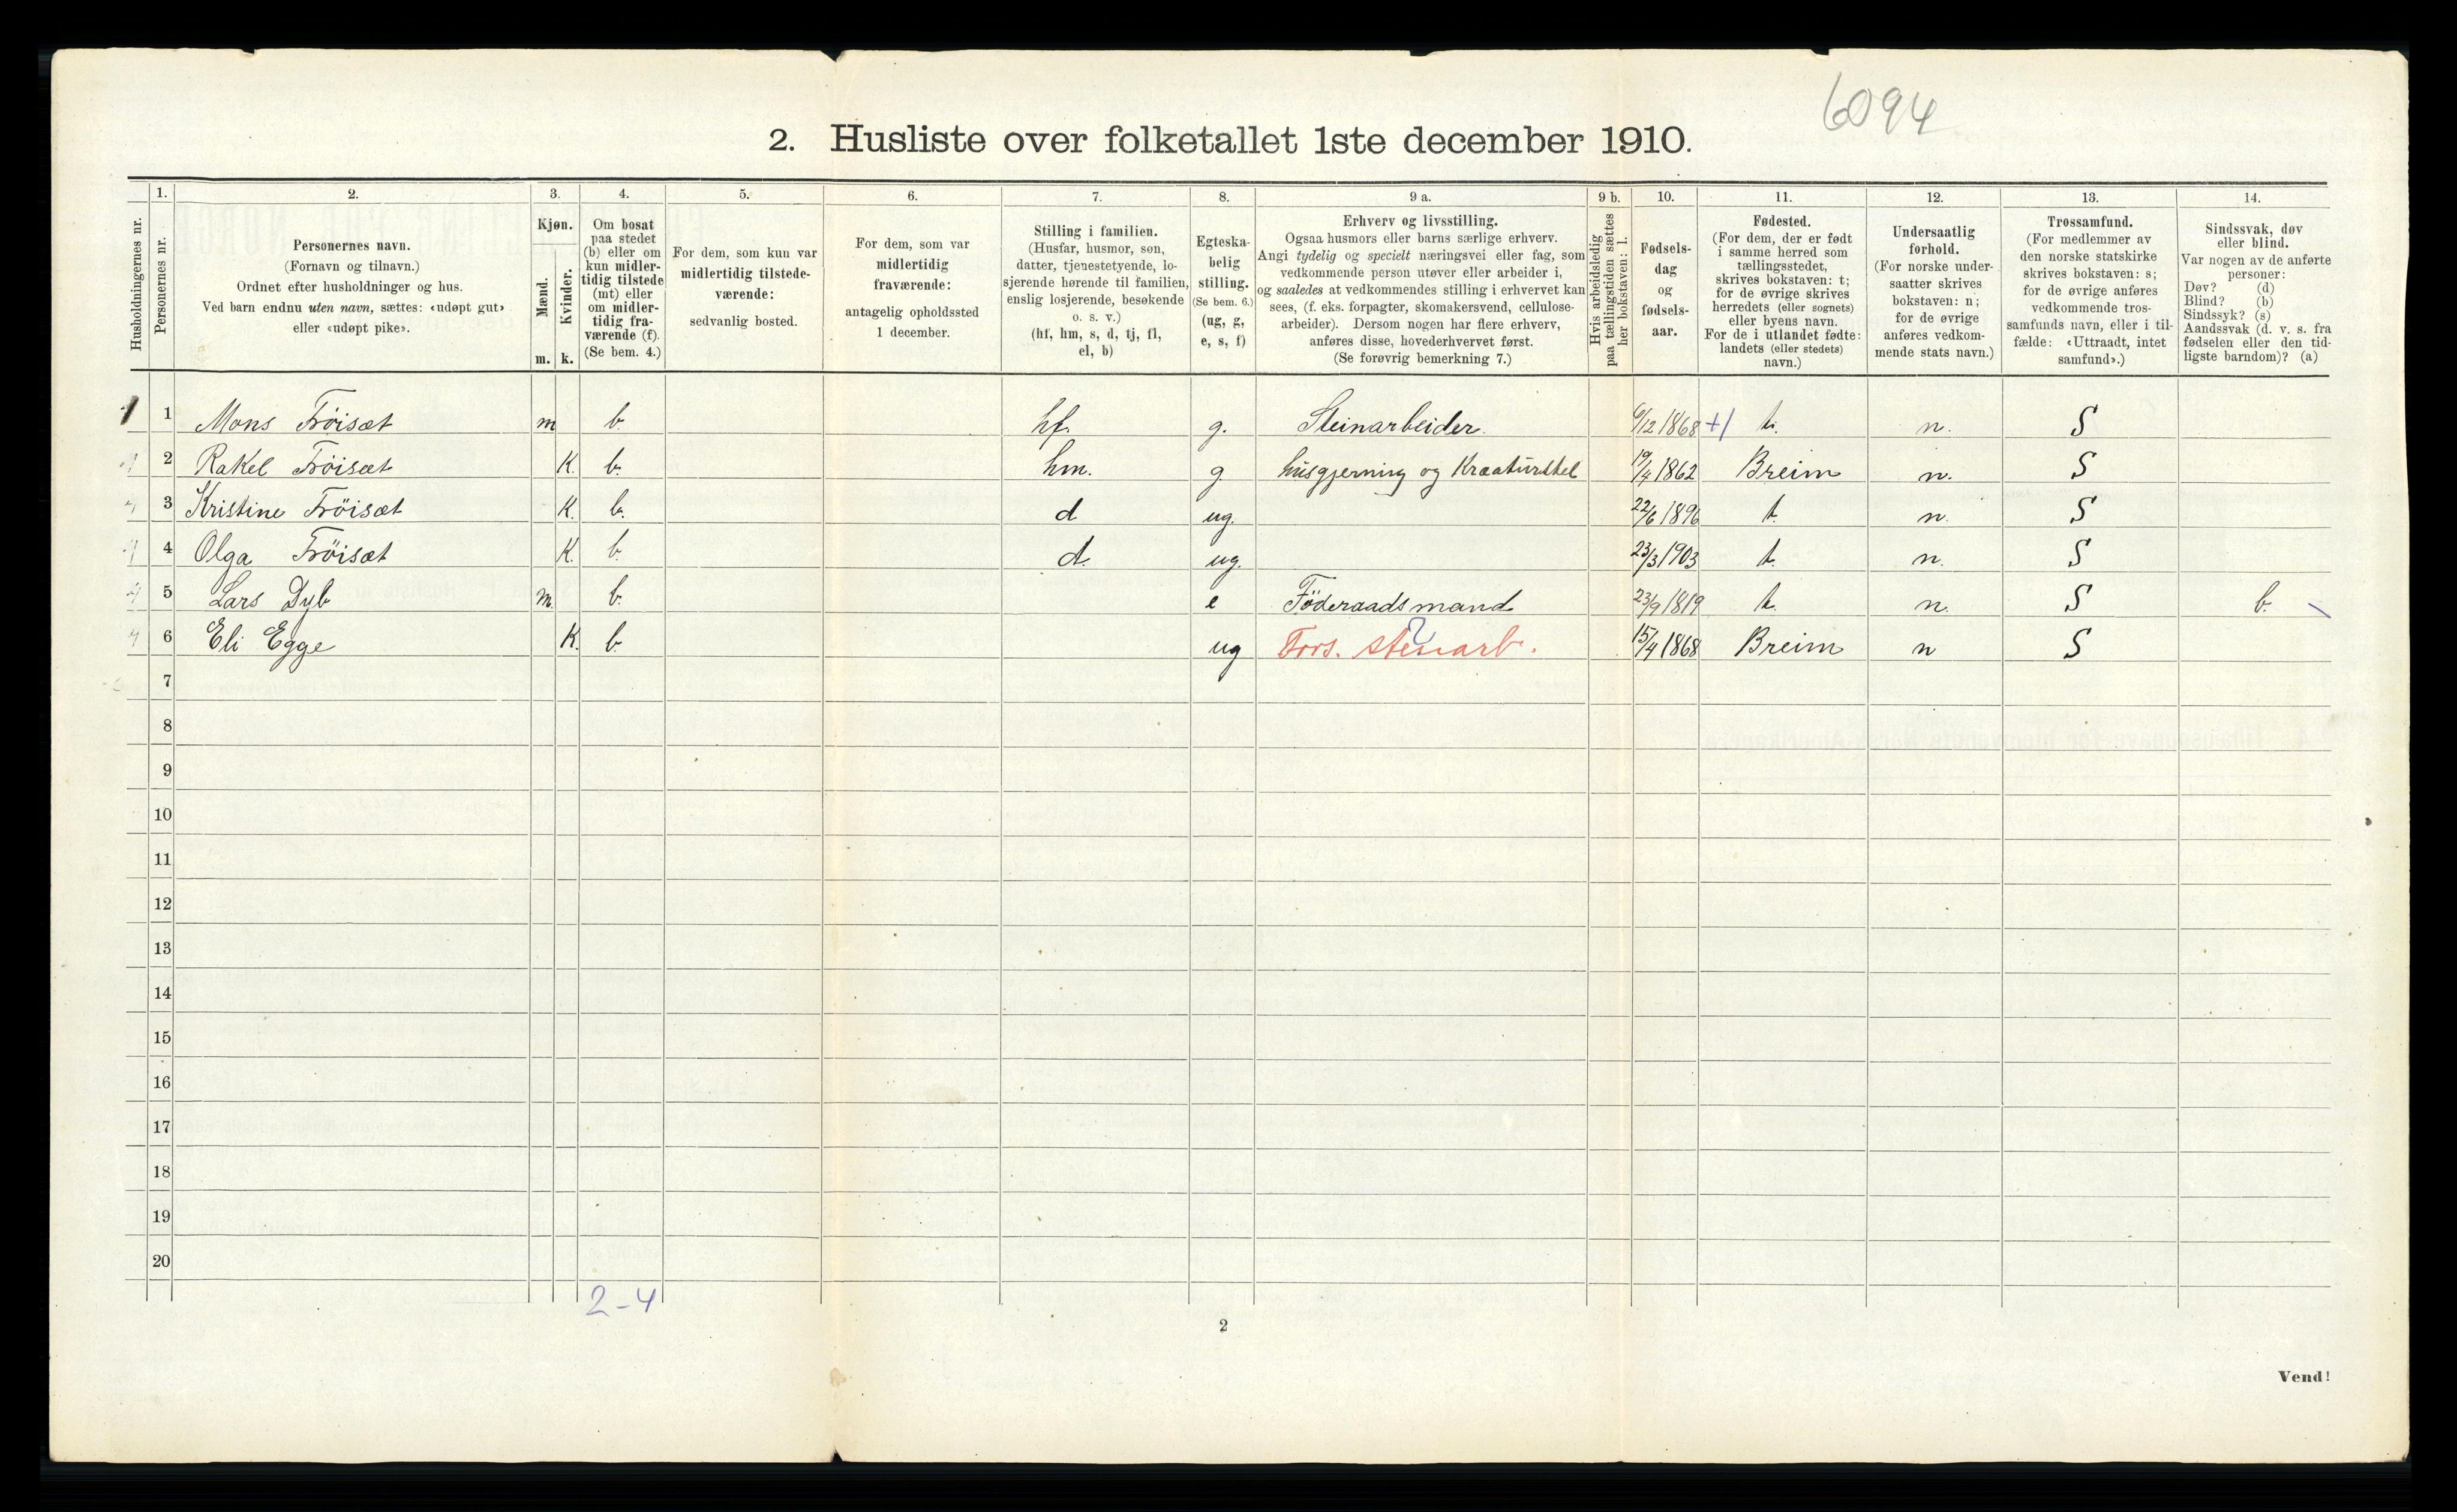 6094
2. Husliste over folketallet 1ste december 1910.
Husholdningernes nr.
1.
Personernes nr.
2.
Personernes navn.
(Fornavn og tilnavn.)
Ordnet efter husholdninger og hus.
Ved barn endnu uten navn, sættes: «udøpt gut»
eller «udøpt pike».
3.
Kjøn.
Mænd.
Kvinder.
m. k.
4.
Om bosat
paa stedet
(b) eller om
kun midler-
tidig tilstede
(mt) eller
om midler-
tidig fra-
værende (f).
(Se bem. 4.)
5.
For dem, som kun var
midlertidig tilstede-
værende:
sedvanlig bosted.
6.
For dem, som var
midlertidig
fraværende:
antagelig opholdssted
1 december.
7.
Stilling i familien.
(Husfar, husmor, søn,
datter, tjenestetyende, lo-
sjerende hørende til familien,
enslig losjerende, besøkende
o. s. v.)
(hf, hm, s, d, tj, fl,
el, b)
8.
Egteska-
belig
stilling.
(Se bem. 6.)
(ug, g,
e, s, f)
9 a.
Erhverv og livsstilling.
Ogsaa husmors eller barns særlige erhverv.
Angi tydelig og specielt næringsvei eller fag, som
vedkommende person utøver eller arbeider i,
og saaledes at vedkommendes stilling i erhvervet kan
sees, (f. eks. forpagter, skomakersvend, cellulose-
arbeider). Dersom nogen har flere erhverv,
anføres disse, hovederhvervet først.
(Se forøvrig bemerkning 7.)
9 b.
Hvis arbeidsledig
paa tællingstiden sættes
her bokstaven: l.
10.
Fødsels-
dag
og
fødsels-
aar.
11.
Fødested.
(For dem, der er født
i samme herred som
tællingsstedet,
skrives bokstaven: t;
for de øvrige skrives
herredets (eller sognets)
eller byens navn.
For de i utlandet fødte:
landets (eller stedets)
navn.)
12.
Undersaatlig
forhold.
(For norske under-
saatter skrives
bokstaven: n;
for de øvrige
anføres vedkom-
mende stats navn.)
13.
Trossamfund.
(For medlemmer av
den norske statskirke
skrives bokstaven: s;
for de øvrige anføres
vedkommende tros-
samfunds navn, eller i til-
fælde: «Uttraadt, intet
samfund».)
14.
Sindssvak, døv
eller blind.
Var nogen av de anførte
personer:
Døv? (d)
Blind? (b)
Sindssyk? (s)
Aandssvak (d. v. s. fra
fødselen eller den tid-
ligste barndom)? (a)
1 1 Mons Fröisæt m b. hf. g. Steinarbeider. 6/12 1868 +1 t. n. S
2 Rakel Fröisæt K. b. hm. g. husgjerning og Kreaturstel 19/4 1862 Breim n. S
3 Kristine Fröisæt K. b. d ug. 22/6 1896 t. n. S
4 Olga Fröisæt K. b. d. ug. 23/3 1903 t. n. S
5 Lars Dyb m. b. e Föderaadsmand 23/9 1819 t. n. S b.
6 Eli Egge K. b. ug Fors. stenarb. ? 15/4 1868 Breim n S
7
8
9
10
11
12
13
14
15
16
17
18
19
20
2-4
2
Vend!